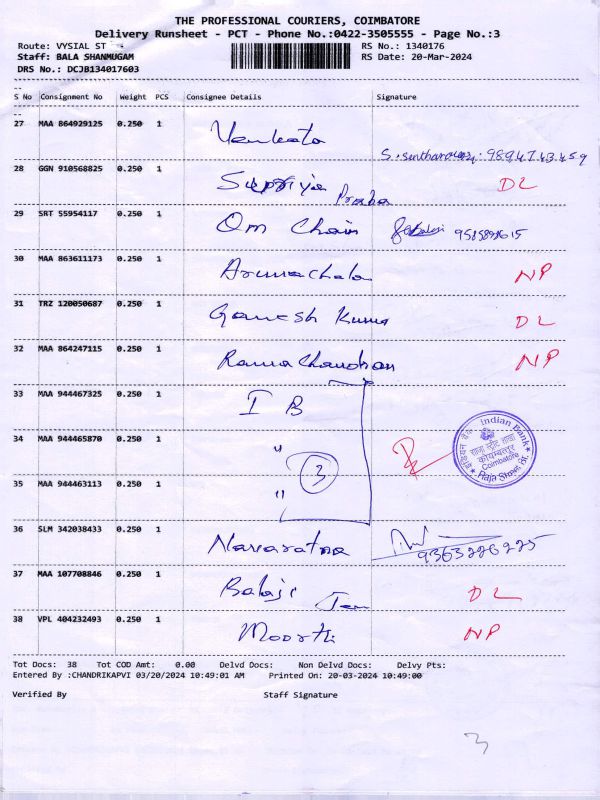 THE PROFESSIONAL COURIERS, COIMBATORE
Delivery Runsheet - PCT - Phone No.:0422-3505555 - Page No.:3
Route: VYSIAL ST RS No.: 1340176
Staff: BALA SHANMUGAM RS Date: 20-Mar-2024
DRS No.: DCJB134017603
S No Consignment No Weight PCS Consignee Details Signature
27 MAA 864929125 0.250 1 Venkata
28 GGN 910568825 0.250 1 Supriya Prabha DL
29 SRT 55954117 0.250 1 Om Chain
30 MAA 863611173 0.250 1 Arunachala NP
31 TRZ 120050687 0.250 1 Ganesh Kuma DL
32 MAA 864247115 0.250 1 Rama Chandran NP
33 MAA 944467325 0.250 1 I B
34 MAA 944465870 0.250 1 "
35 MAA 944463113 0.250 1 " 3
इंडियन बैंक Indian Bank
कोयम्बत्तूर
Coimbatore
Raja Street Br.
36 SLM 342038433 0.250 1 Navaratna 9363226225
37 MAA 107708846 0.250 1 Balaji DL
38 VPL 404232493 0.250 1 Moorthi NP
Tot Docs: 38 Tot COD Amt: 0.00 Delvd Docs: Non Delvd Docs: Delvy Pts:
Entered By :CHANDRIKAPVI 03/20/2024 10:49:01 AM Printed On: 20-03-2024 10:49:00
Verified By Staff Signature
3